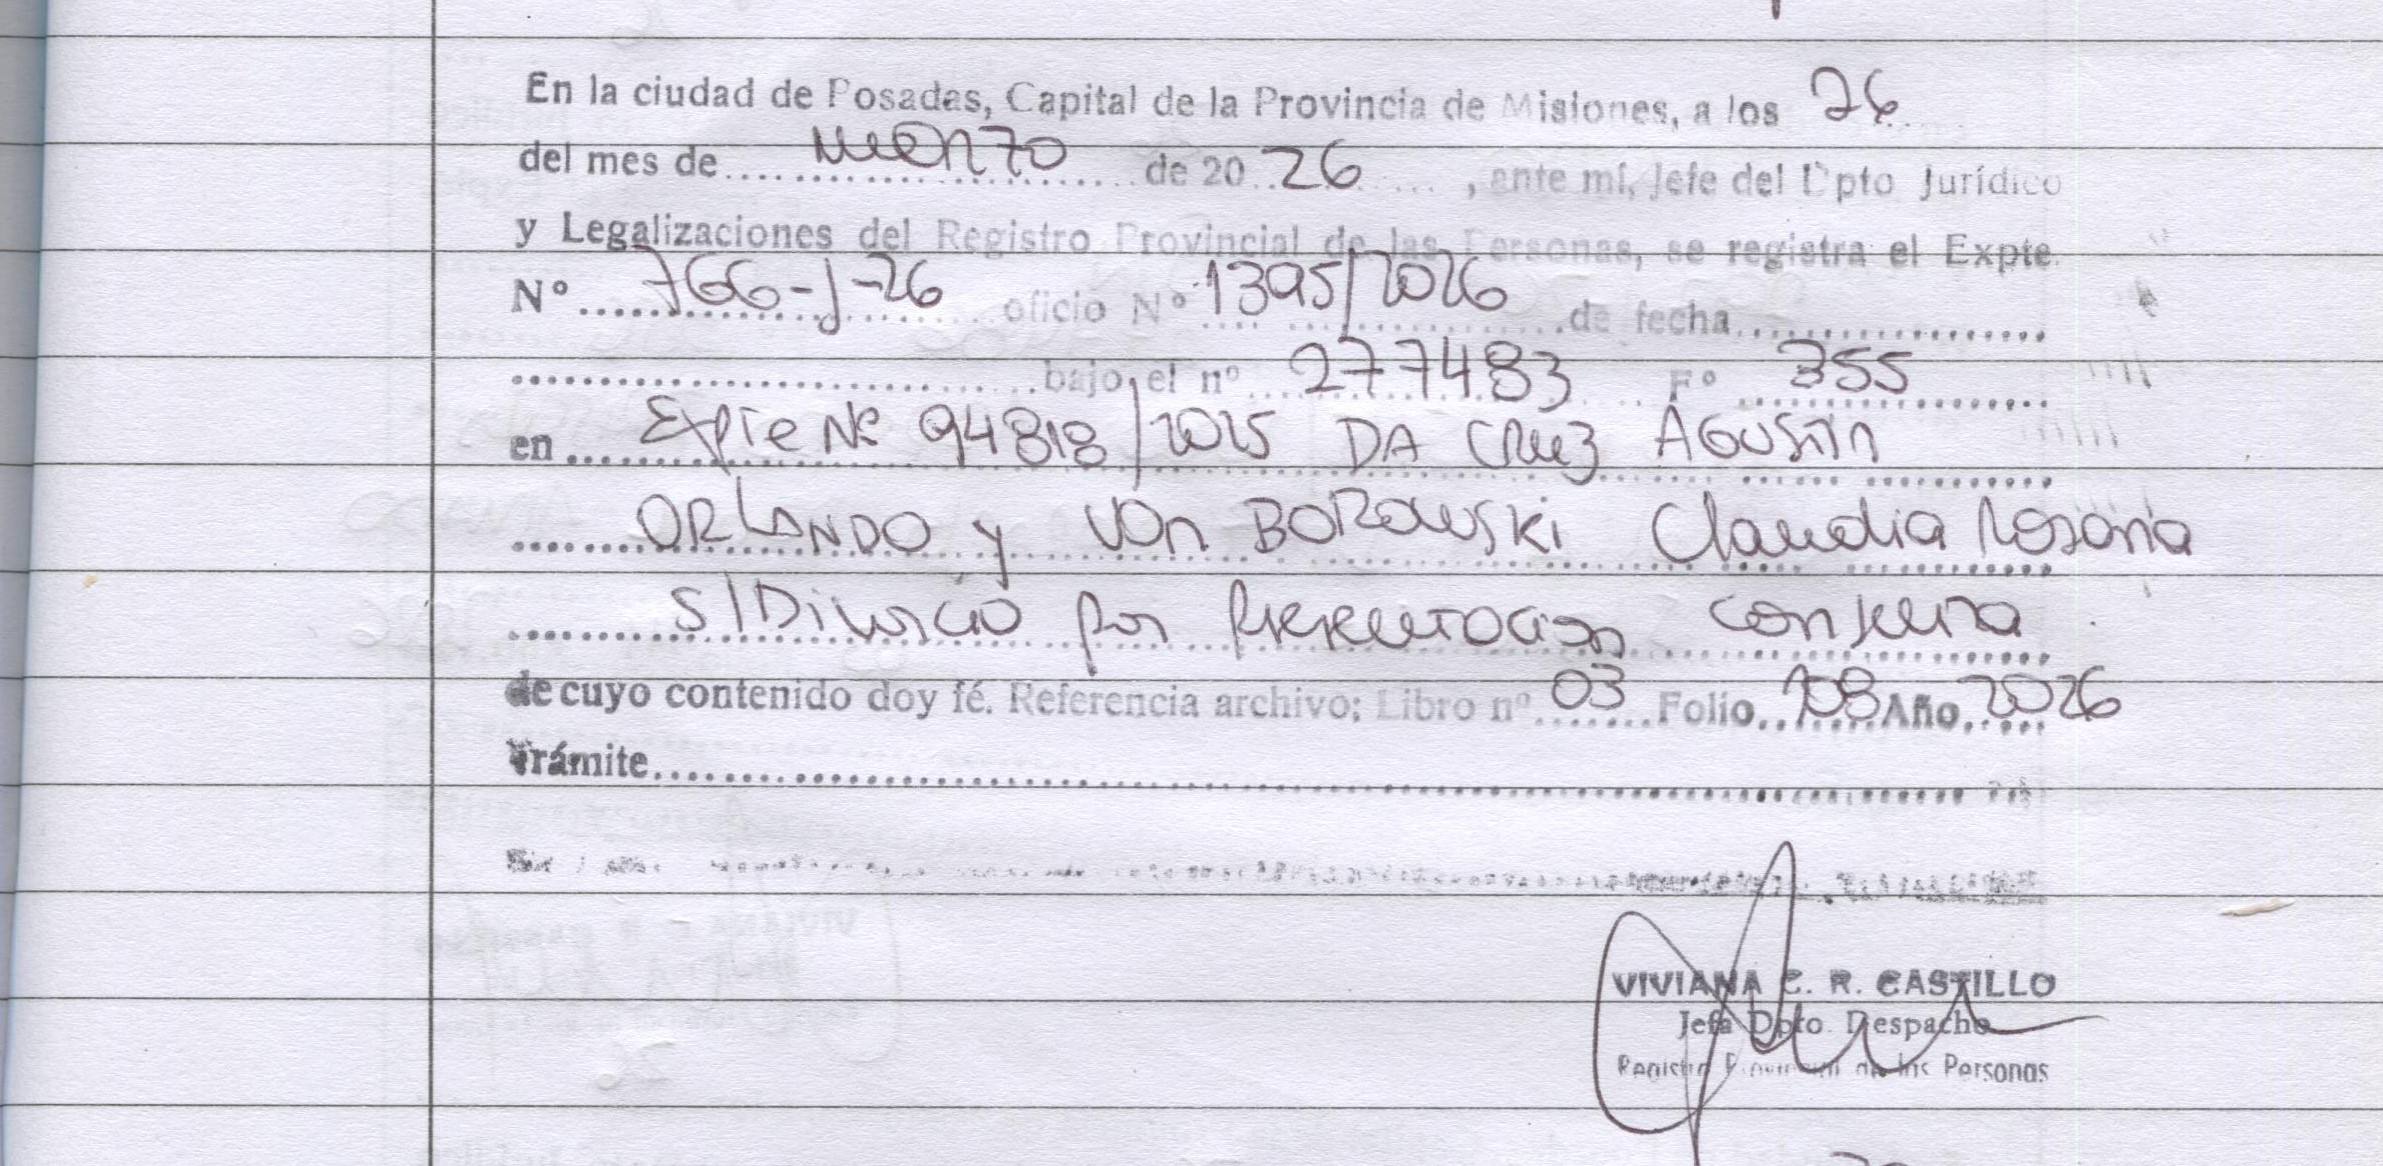 En la ciudad de Posadas, Capital de la Provincia de Misiones, a los 26
del mes de marzo de 20 26, ante mí, Jefe del Dpto Jurídico
y Legalizaciones del Registro Provincial de las Personas, se registra el Expte.
Nº 766-J-26 oficio Nº 1395/2026 de fecha
bajo el nº 277483 Fº 355
en Expte Nº 94818/2025 DA CRUZ AGUSTIN
ORLANDO y VON BOROWSKI Claudia Rosana
S/Divorcio por Presentacion conjunta
de cuyo contenido doy fé. Referencia archivo: Libro nº 03 Folio 108 Año 2026
Trámite
VIVIANA C. R. CASTILLO
Jefa Dpto. Despacho
Registro Provincial de las Personas